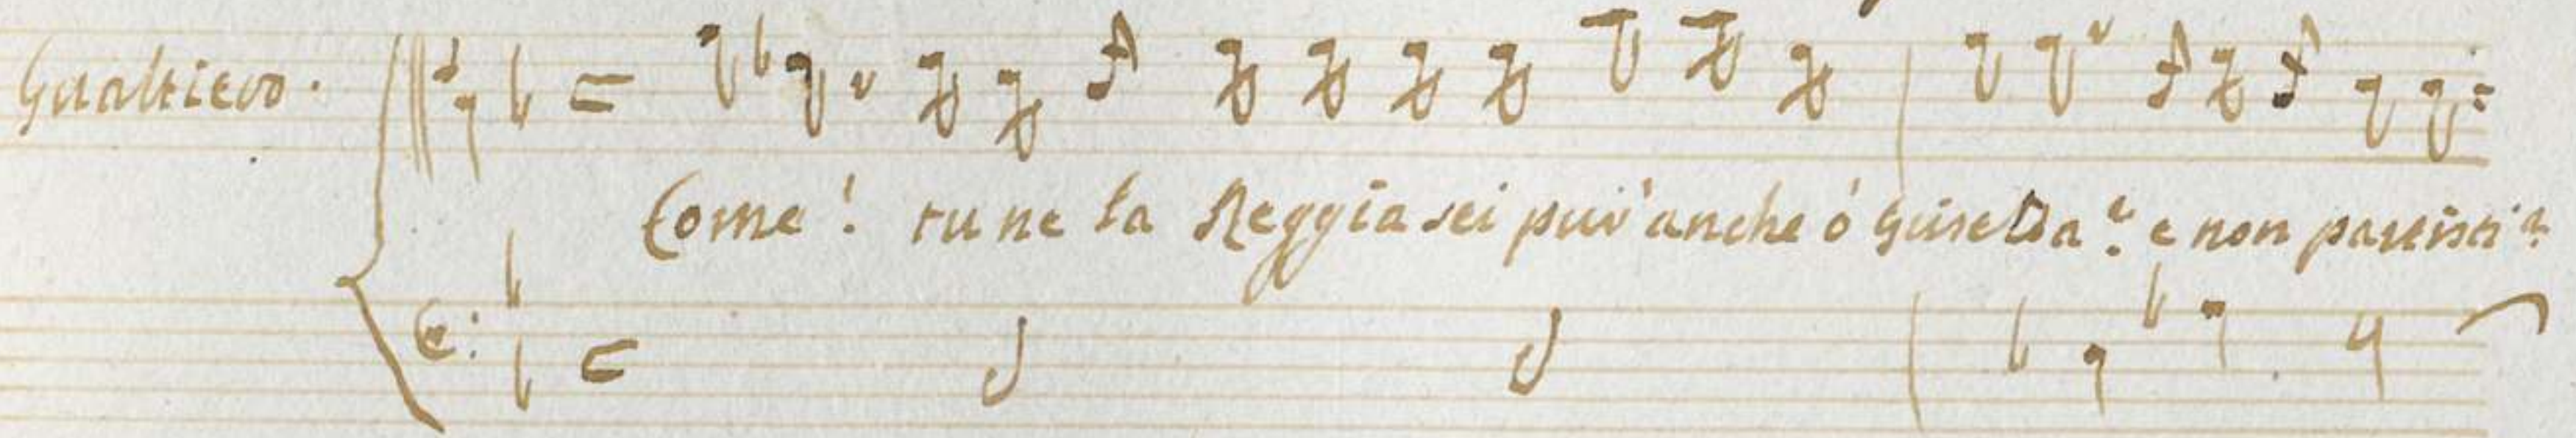 Gualtiero.
Come! tu ne la Reggia sei pur'anche ò Griselda? e non partisti?